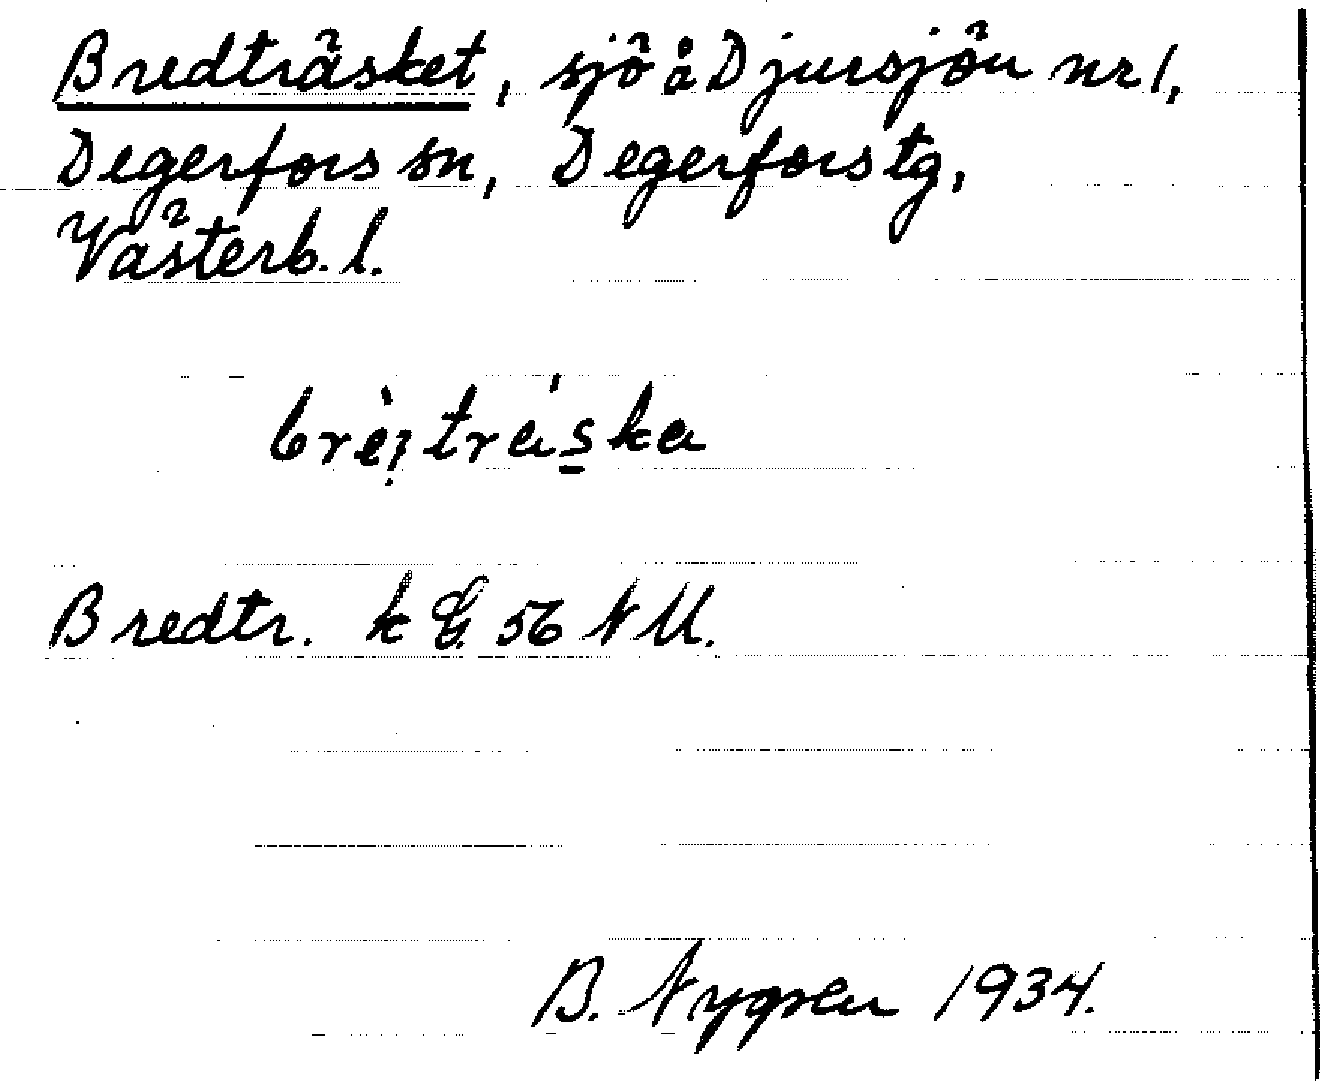 Bredträsket, sjö å Djursjön nr 1,
Degerfors sn, Degerfors tg,
Västerb. l.
Bredtr. k G. 56 NU.
B. Nygren 1934.